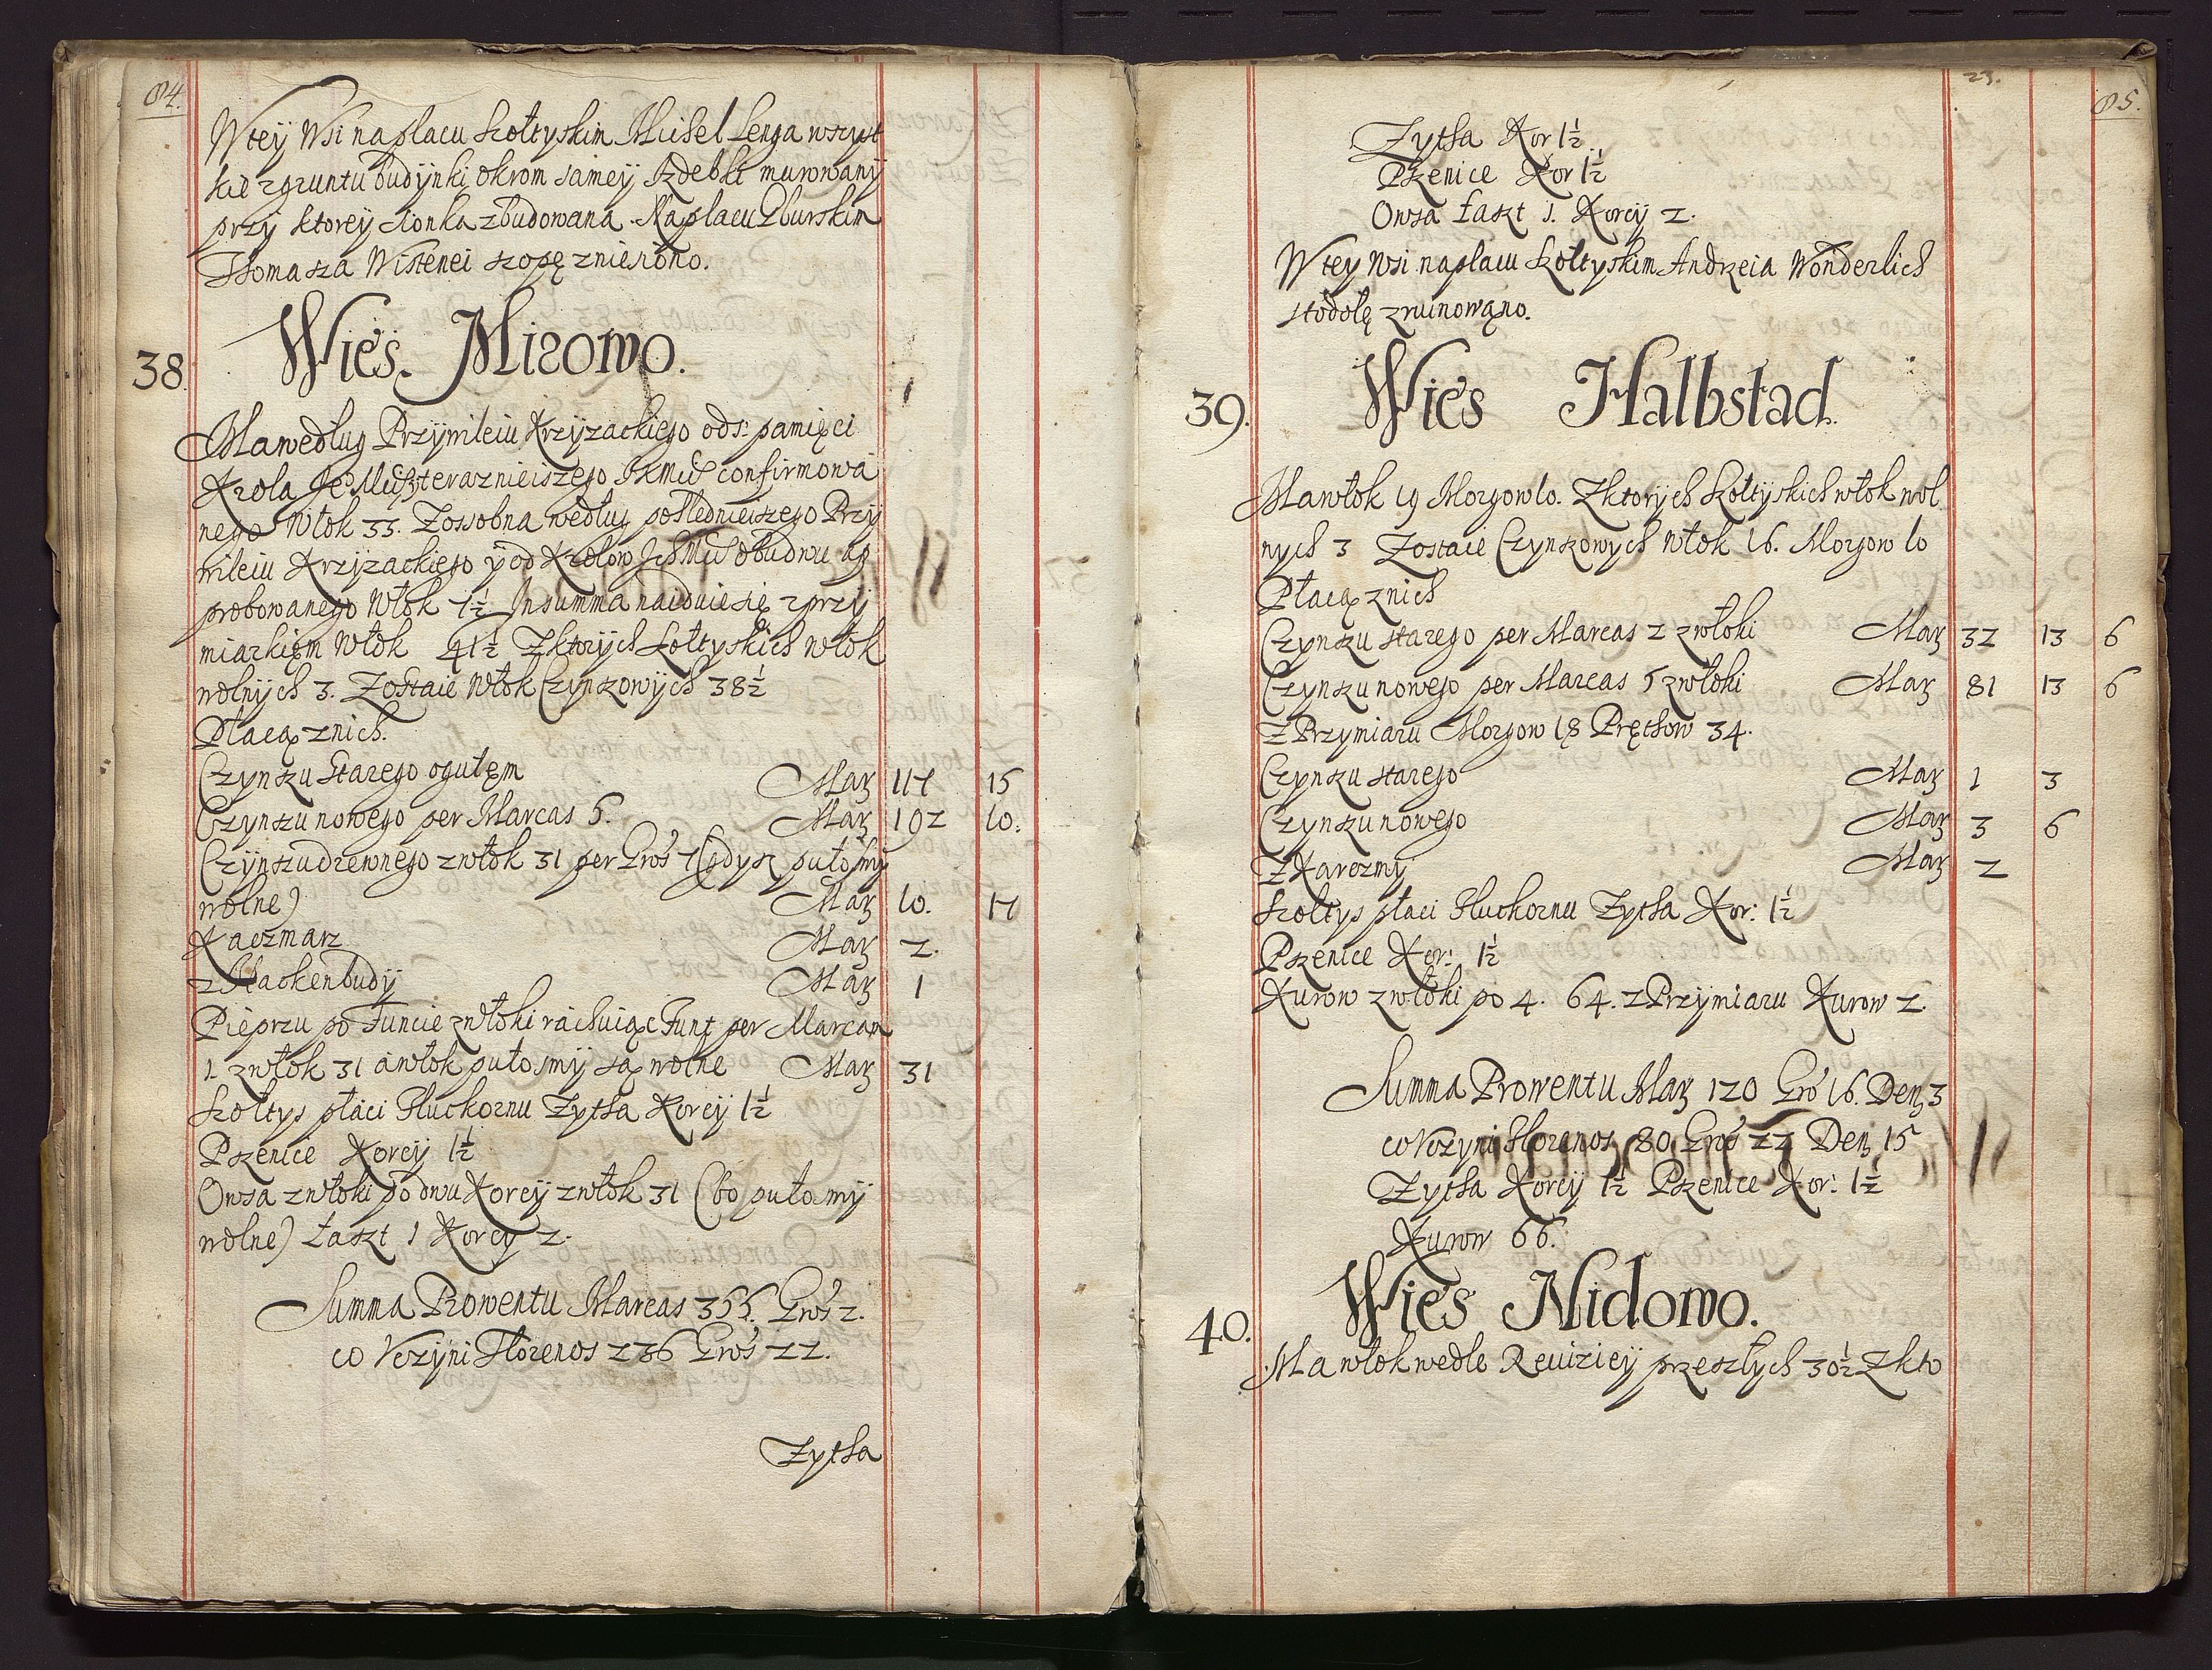 84.
W tey Wsi na placu Szołtyskim Michel Lenga wszyst
kie z gruntu budynki okrom samey Izdebki murowany
przy ktorey sionka zbudowana. Na placu Gburskim
Thomasza Wistenei szopę zniesiono.
38. Wies. Mirowo.
Ma według Przywileiu Krzyzackiego od s: pamięci
Krola Je° Mści teraznieiszego JKMCi confirmowa
nego Włok 33. Zossobna według posledniejszego Przy
wileiu Krzyzackiego y od Krolow Ich Mci obudwu ap
probowanego Włok 7½ In summa naiduie się z przy
miarkiem Włok 41½ Z ktorych Szołtyskich włok
wolnych 3. Zostaie Włok Czynszowych 38½
Płacą znich.
Czynszu Starego ogułem Mar 117 15
Czynszu nowego per Marcas 5. Mar 192 10.
Czynszu drzewnego z włok 31 per Gros 7 (gdysz pułosmy
wolne) Mar 10. 17
Kaczmarz Mar 2.
z Hackenbudy Mar 1
Pieprzu po Funcie z włoki rachuiąc Funt per Marcam
1. z włok 31 a włok puł osmy są wolne Mar 31
Szołtys płaci Pluckornu Zytha Korcy 1½
Pszenice Korcy 1½
Owsa z włoki po dwu Korcy z włok 31 (bo puł osmy
wolne) Łaszt 1 Korcy 2.
Summa Prowentu Marcas 355. Gros 2.
co Vczyni Florenos 236 Gros 22.
Zytha
23.
85.
Zytha Kor 1½
Pszenice Kor 1½
Owsa Łaszt 1. Korcy 2.
W tey Wsi na placu Szołtyskim Andrzeia Wonderlich
stodołę zruinowano.
39. Wies Halbstad.
Ma włok 19 Morgow 10. Z ktorych Szołtyskich włok wol
nych 3 Zostaie Czynszowych Włok 16. Morgow 10
Płacą znich
Czynszu starego per Marcas 2 z włoki Mar 32 13 6
Czynszu nowego per Marcas 5 z włoki Mar 81 13 6
Z Przymiaru Morgow 18 Prętkow 34.
Czynszu starego Mar 1 3
Czynszu nowego Mar 3 6
Z Karczmy Mar 2
Szołtys płaci Pluckornu Zytha Kor: 1½
Pszenice Kor: 1½
Kurow z włoki po 4. 64. z Przymiaru Kurow 2.
Summa Prowentu Mar 120 Gro 16. Den 3
co Vczyni Florenos 80 Gros 22 Den 15
Zytha Korcy 1½ Pszenice Kor: 1½
Kurow 66.
40. Wies Nidowo.
Ma włok wedle Reuiziey przeszłych 30½ Z kto